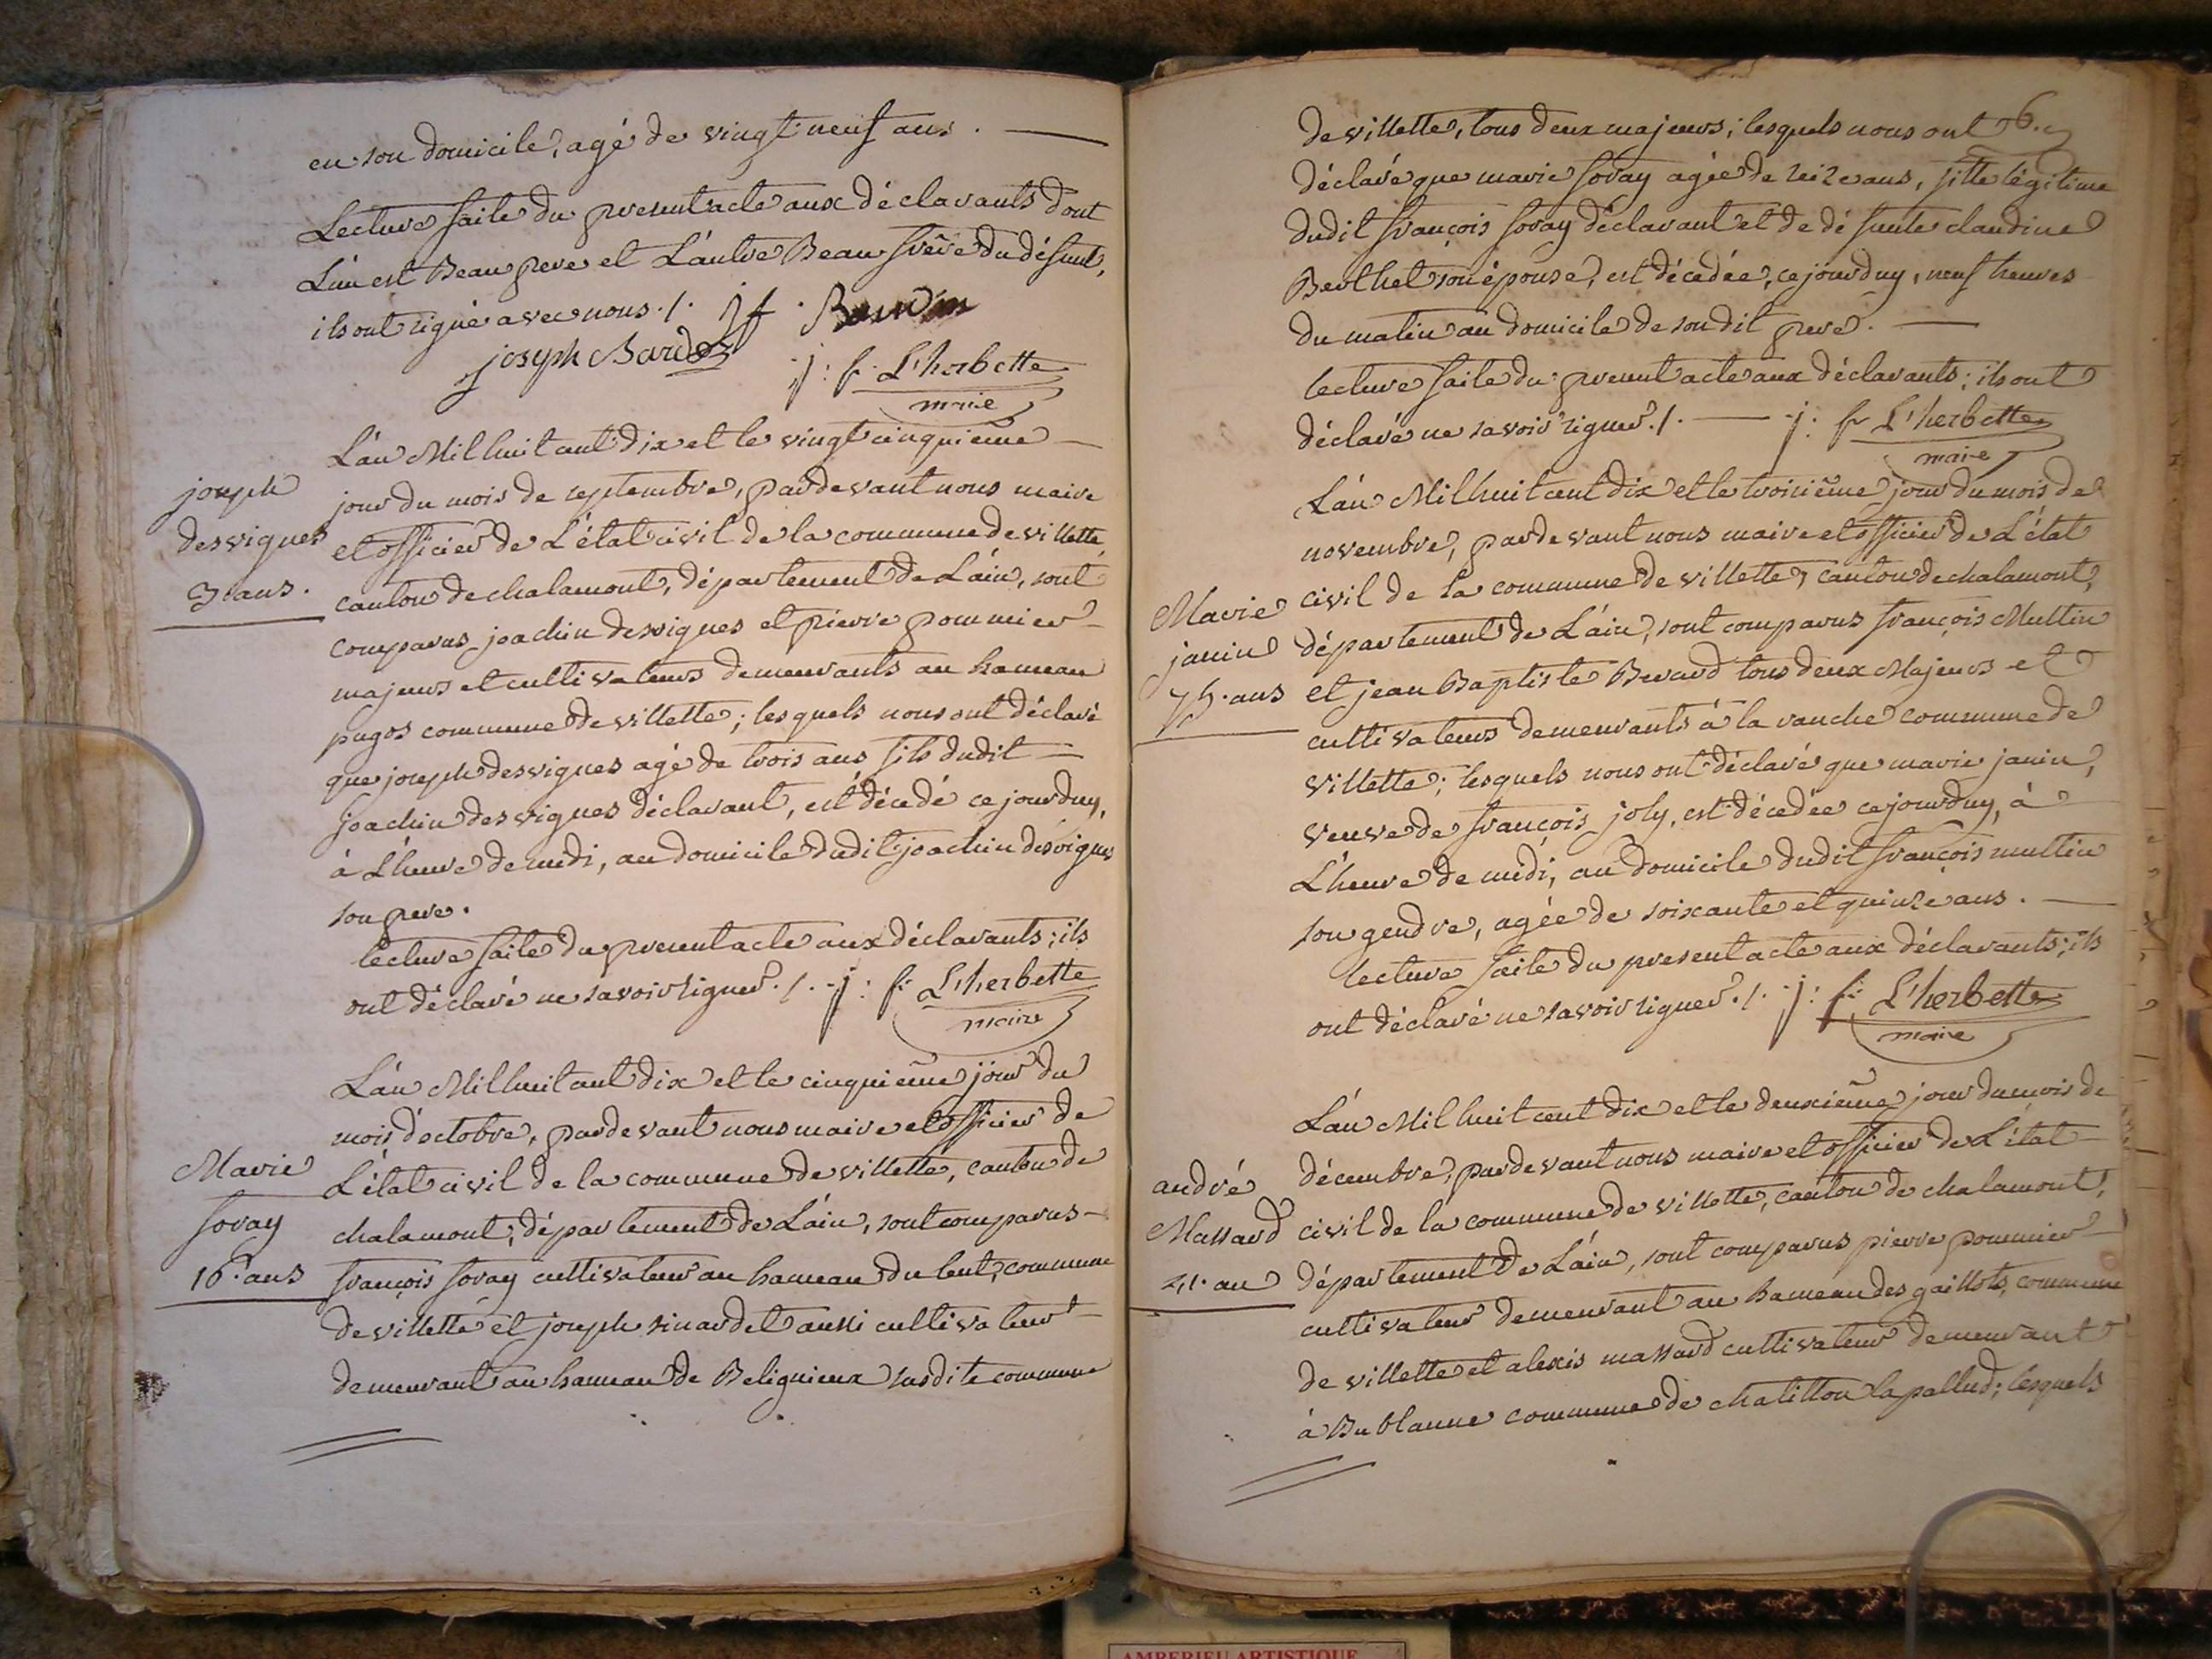 en son domicile, agé de vingt neuf ans. —
Lecture faite du present acte aux déclarants dont
L'un est Beau pere et L'autre Beau frère du défunt,
ils ont signé avec nous ./.
joseph
j: f. L'herbette
maire
L'an Mil huit cent dix et le vingt cinquième —
joseph
desvignes
3 ans.
jour du mois de septembre, pardevant nous maire
et officier de L'état civil de la commune de villette,
canton de chalamont, département de L'ain, sont
comparus joachin desvignes et pierre pommier —
majeurs et cultivateurs demeurants au hameau
pugos commune de villette; lesquels nous ont déclaré
que joseph desvignes agé de trois ans fils dudit —
joachin desvignes déclarant, est décedé ce jourduy,
à L'heure de midi, au domicile dudit joachin desvignes
son pere.
lecture faite du present acte aux déclarants; ils
ont déclaré ne savoir signer ./. j: f: L'herbette
maire
L'an Mil huit cent dix et le cinquième jour du
mois d'octobre, pardevant nous maire et officier de
Marie
foray
16. ans
L'état civil de la commune de villette, canton de
chalamont, département de L'ain, sont comparus —
françois foray cultivateur au hameau du lent, commune
de villette et joseph sinardet aussi cultivateur —
demeurant au hameau de Beligneux susdite commune
6.
de villette, tous deux majeurs; lesquels nous ont
déclaré que marie foray agée de seize ans, fille légitime
dudit françois foray déclarant et de défunte claudine
Berthet son épouse, est décedée, ce jourduy, neuf heures
du matin au domicile de son dit pere. —
lecture faite du present acte aux déclarants; ils ont
déclaré ne savoir signer ./. — j: f L'herbette
maire
L'an Mil huit cent dix et le troisième jour du mois de
novembre, pardevant nous maire et officier de L'état
Marie
janin
75. ans
civil de la commune de villette, canton de chalamont,
département de L'ain, sont comparus françois Multin
et jean Baptiste Berard tous deux Majeurs et
cultivateurs demeurants à la ranche commune de
villette; lesquels nous ont déclaré que marie janin,
veuve de françois joly, est décedée ce jourduy, à
L'heure de midi, au domicile dudit françois multin
son gendre, agée de soixante et quinze ans. —
lecture faite du present acte aux déclarants; ils
ont déclaré ne savoir signer ./. j: f: L'herbette
maire
L'an Mil huit cent dix et le deuxième jour du mois de
décembre, pardevant nous maire et officier de L'état —
andré
Massard
civil de la commune de villette, canton de chalamont,
département de L'ain, sont comparus pierre pommier —
cultivateur demeurant au hameau des gaillots, commune
de villette et alexis massard cultivateur demeurant
à Bublanne commune de chatillon lapallud; lesquels
AMBERIEU ARTISTIQUE